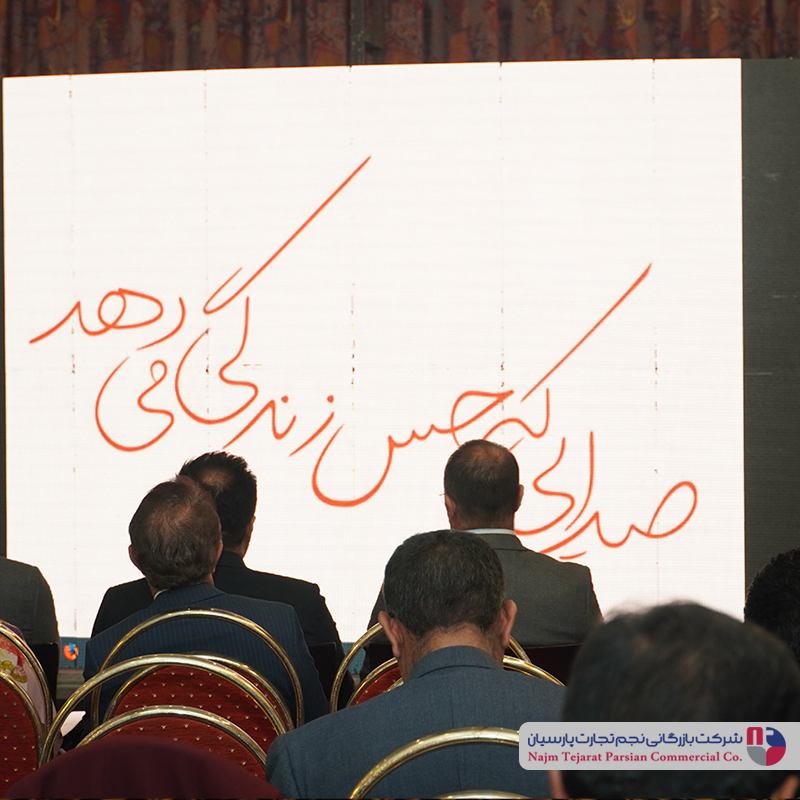 صدایی که حس زندگی می دهد
شرکت بازرگانی نجم تجارت پارسیان
Najm Tejarat Parsian Commercial Co.